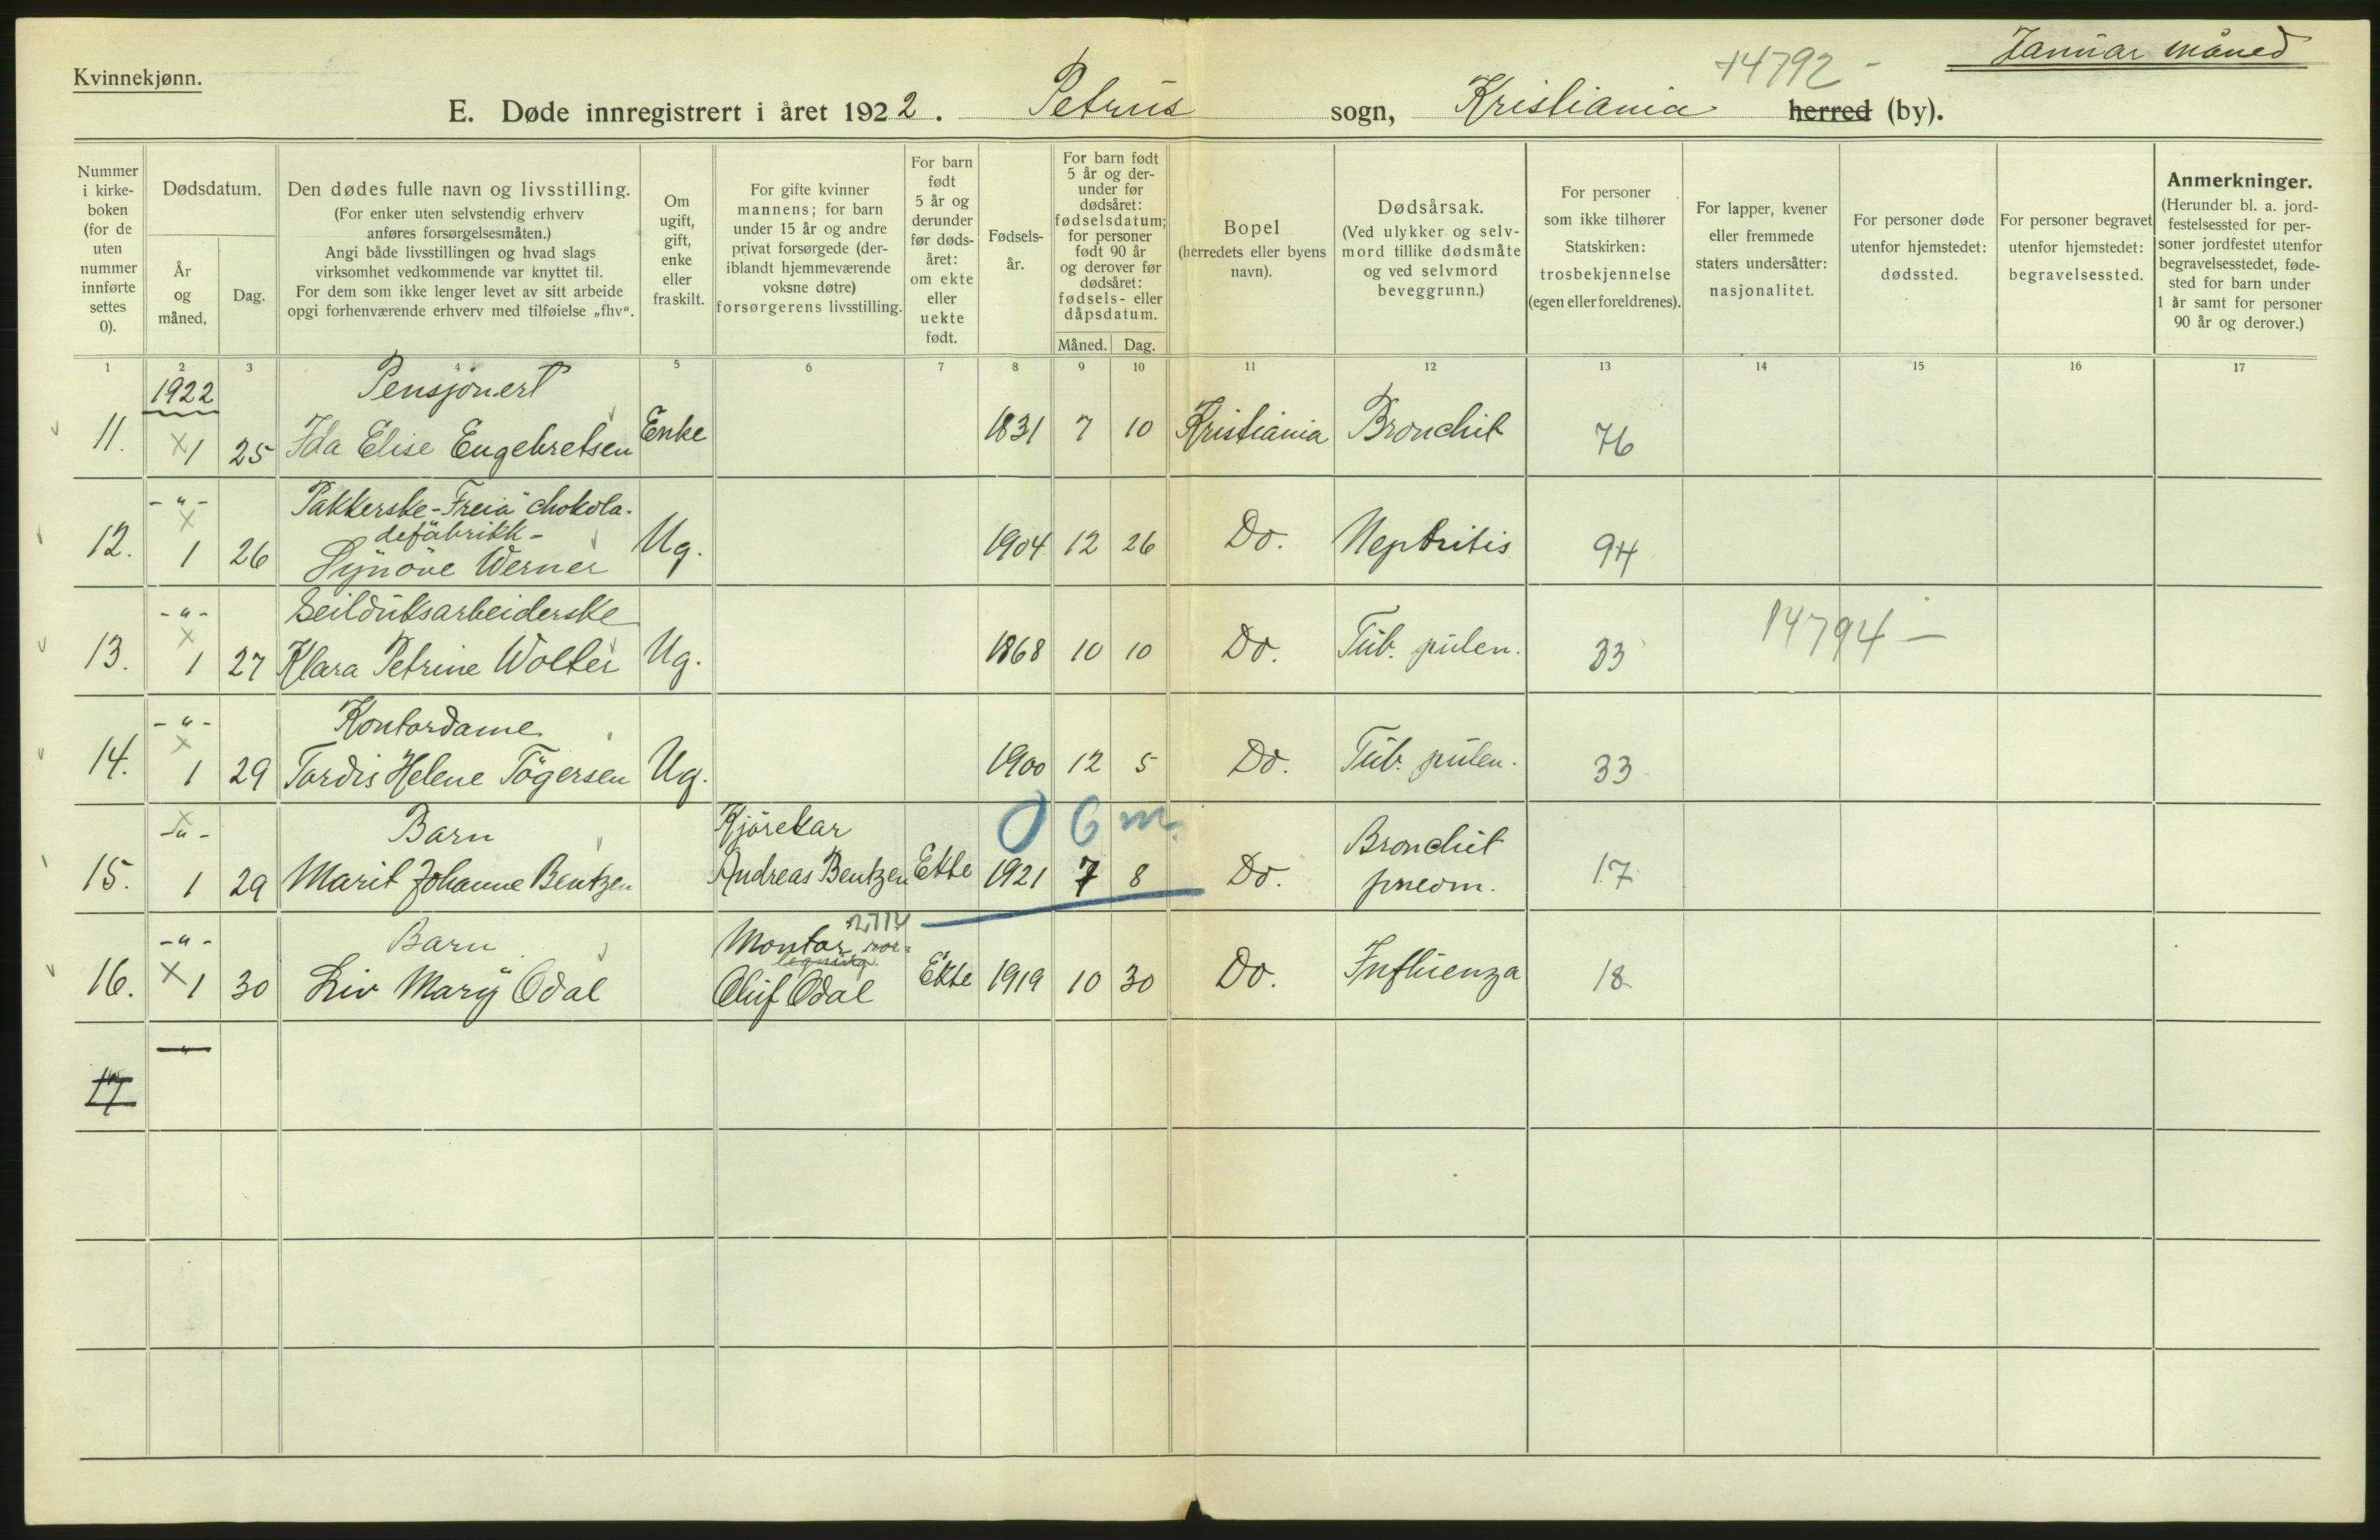 Kvinnekjønn.
Januar måned
14792 -
E. Døde innregistrert i året 1922. Petrus sogn, Kristiania herred (by).
Nummer i kirke- boken (for de uten nummer innførte settes 0).
Dødsdatum.
År og måned.
Dag.
Den dødes fulle navn og livsstilling.
(For enker uten selvstendig erhverv anføres forsørgelsesmåten.)
Angi både livsstillingen og hvad slags virksomhet vedkommende var knyttet til.
For dem som ikke lenger levet av sitt arbeide opgi forhenværende erhverv med tilføielse „fhv“.
Om ugift, gift, enke eller fraskilt.
For gifte kvinner mannens; for barn under 15 år og andre privat forsørgede (der- iblandt hjemmeværende voksne døtre) forsørgerens livsstilling.
For barn født 5 år og derunder før døds- året: om ekte eller uekte født.
Fødsels- år.
For barn født 5 år og der- under før dødsåret: fødselsdatum; for personer født 90 år og derover før dødsåret: fødsels- eller dåpsdatum.
Måned. Dag.
Bopel (herredets eller byens navn).
Dødsårsak. (Ved ulykker og selv- mord tillike dødsmåte og ved selvmord beveggrunn.)
For personer som ikke tilhører Statskirken: trosbekjennelse (egen eller foreldrenes).
For lapper, kvener eller fremmede staters undersåtter: nasjonalitet.
For personer døde utenfor hjemstedet: dødssted.
For personer begravet utenfor hjemstedet: begravelsessted.
Anmerkninger. (Herunder bl. a. jord- festelsessted for per- soner jordfestet utenfor begravelsesstedet, føde- sted for barn under 1 år samt for personer 90 år og derover.)
1 2 3 4 5 6 7 8 9 10 11 12 13 14 15 16 17
1922 Pensjonert
11. X 1 25 Ida Elise Engebretsen Enke 1831 7 10 Kristiania Bronchit 76
- " - Pakkerske - Freia" chokola-
X defabrikk -
12. 1 26 Synöve Werner Ug. 1904 12 26 Do. Neptritis 94
- " - Seilduksarbeiderske
X 14794 -
13. 1 27 Klara Petrine Wolter Ug. 1868 10 10 Do. Tub. pulen. 33
- " - Kontordame
X
14. 1 29 Tordis Helene Tögersen Ug. 1900 12 5 Do. Tub. pulen. 33
X 0 6 m.
- " - Barn Kjörekar Bronchit
15. 1 29 Marit Johanne Bentzen Andreas Bentzen Ekte 1921 7 8 Do. pneom. 17
- " - Barn Montør
16. X 1 30 Liv Mary Odal Oluf Odal Ekte 1919 10 30 Do. Influenza 18
- " -
17